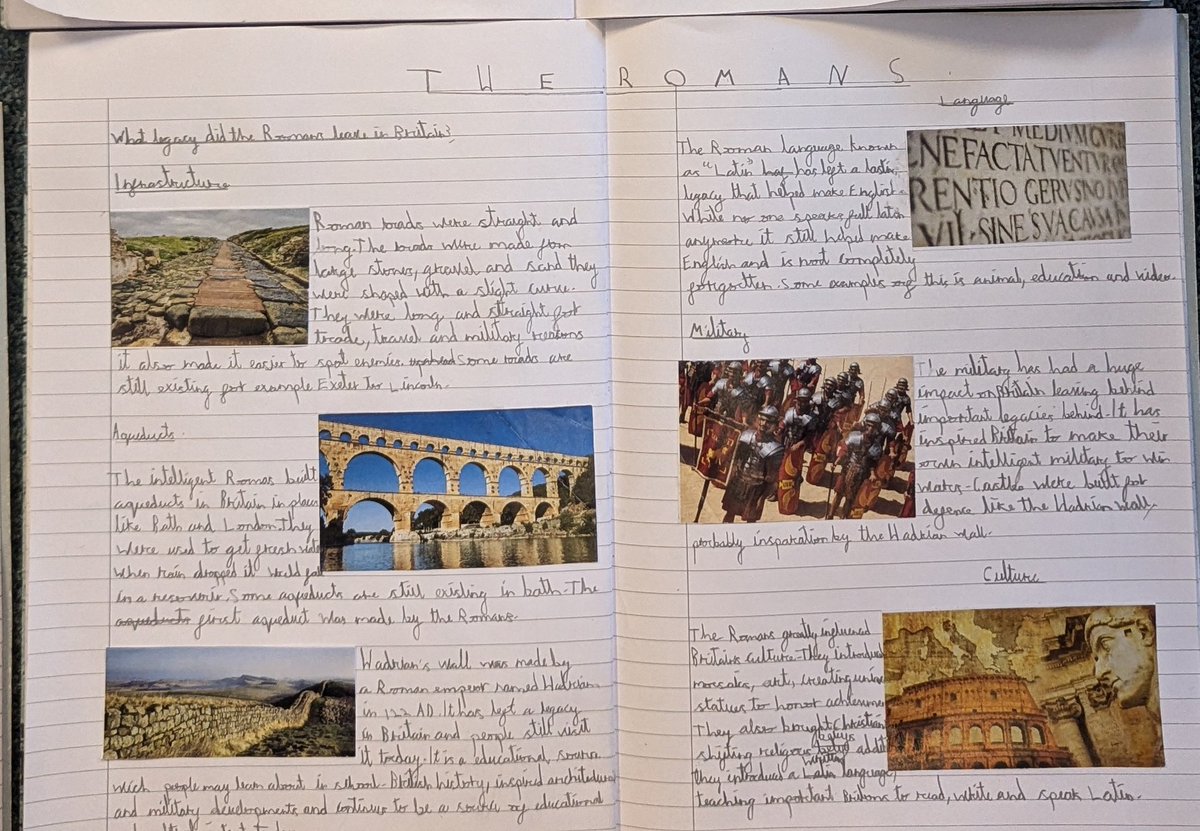 THE ROMANS
What legacy did the Romans leave in Britain?
Infrastructure
Roman roads were straight and
long. The roads were made from
large stones, gravel and sand they
were shaped with a slight curve.
They were long and straight for
trade, travel and military reasons
it also made it easier to spot enemies. Some roads are
still existing for example Exeter to Lincoln.
Aqueducts
The intelligent Romas built
aqueducts in Britain in places
like Bath and London. They
were used to get fresh
when rain dropped it would fall
in a reservoir. Some aqueducts are still existing in bath. The
aqueducts first aqueduct was made by the Romans.
Hadrian's wall was made by
a Roman emperor named Hadrian
in 122 AD. It has left a legacy
in Britain and people still visit
it today. It is a educational, source
wich people may learn about in school. British history, inspired architectural
and military developments and continues to be a source of educational
Language
The Roman language known
as "Latin" has left a lasting
legacy that helped make English.
While no one speaks full latin
anymore it still helped make
English and is not completely
forgotten. Some examples of this is animal, education and video.
MEDIVM
NEFACTATVENTVR
RENTIO GERVSNO
VII SINE SVA CAVSA
Military
The military has had a huge
impact on Britain leaving behind
important legacies behind. It has
inspired Britain to make their
own intelligent military to win
wars. Castles were built for
defence like the Hadrian wall.
probably inspiration by the Hadrian wall.
Culture
The Romans greatly influenced
Britains culture. They introduced
mosaks, art, creating
statues to honor
They also brought Christian
shifting religious beliefs
writing
they introduced a Latin language,
teaching important Britons to read, write and speak Latin.